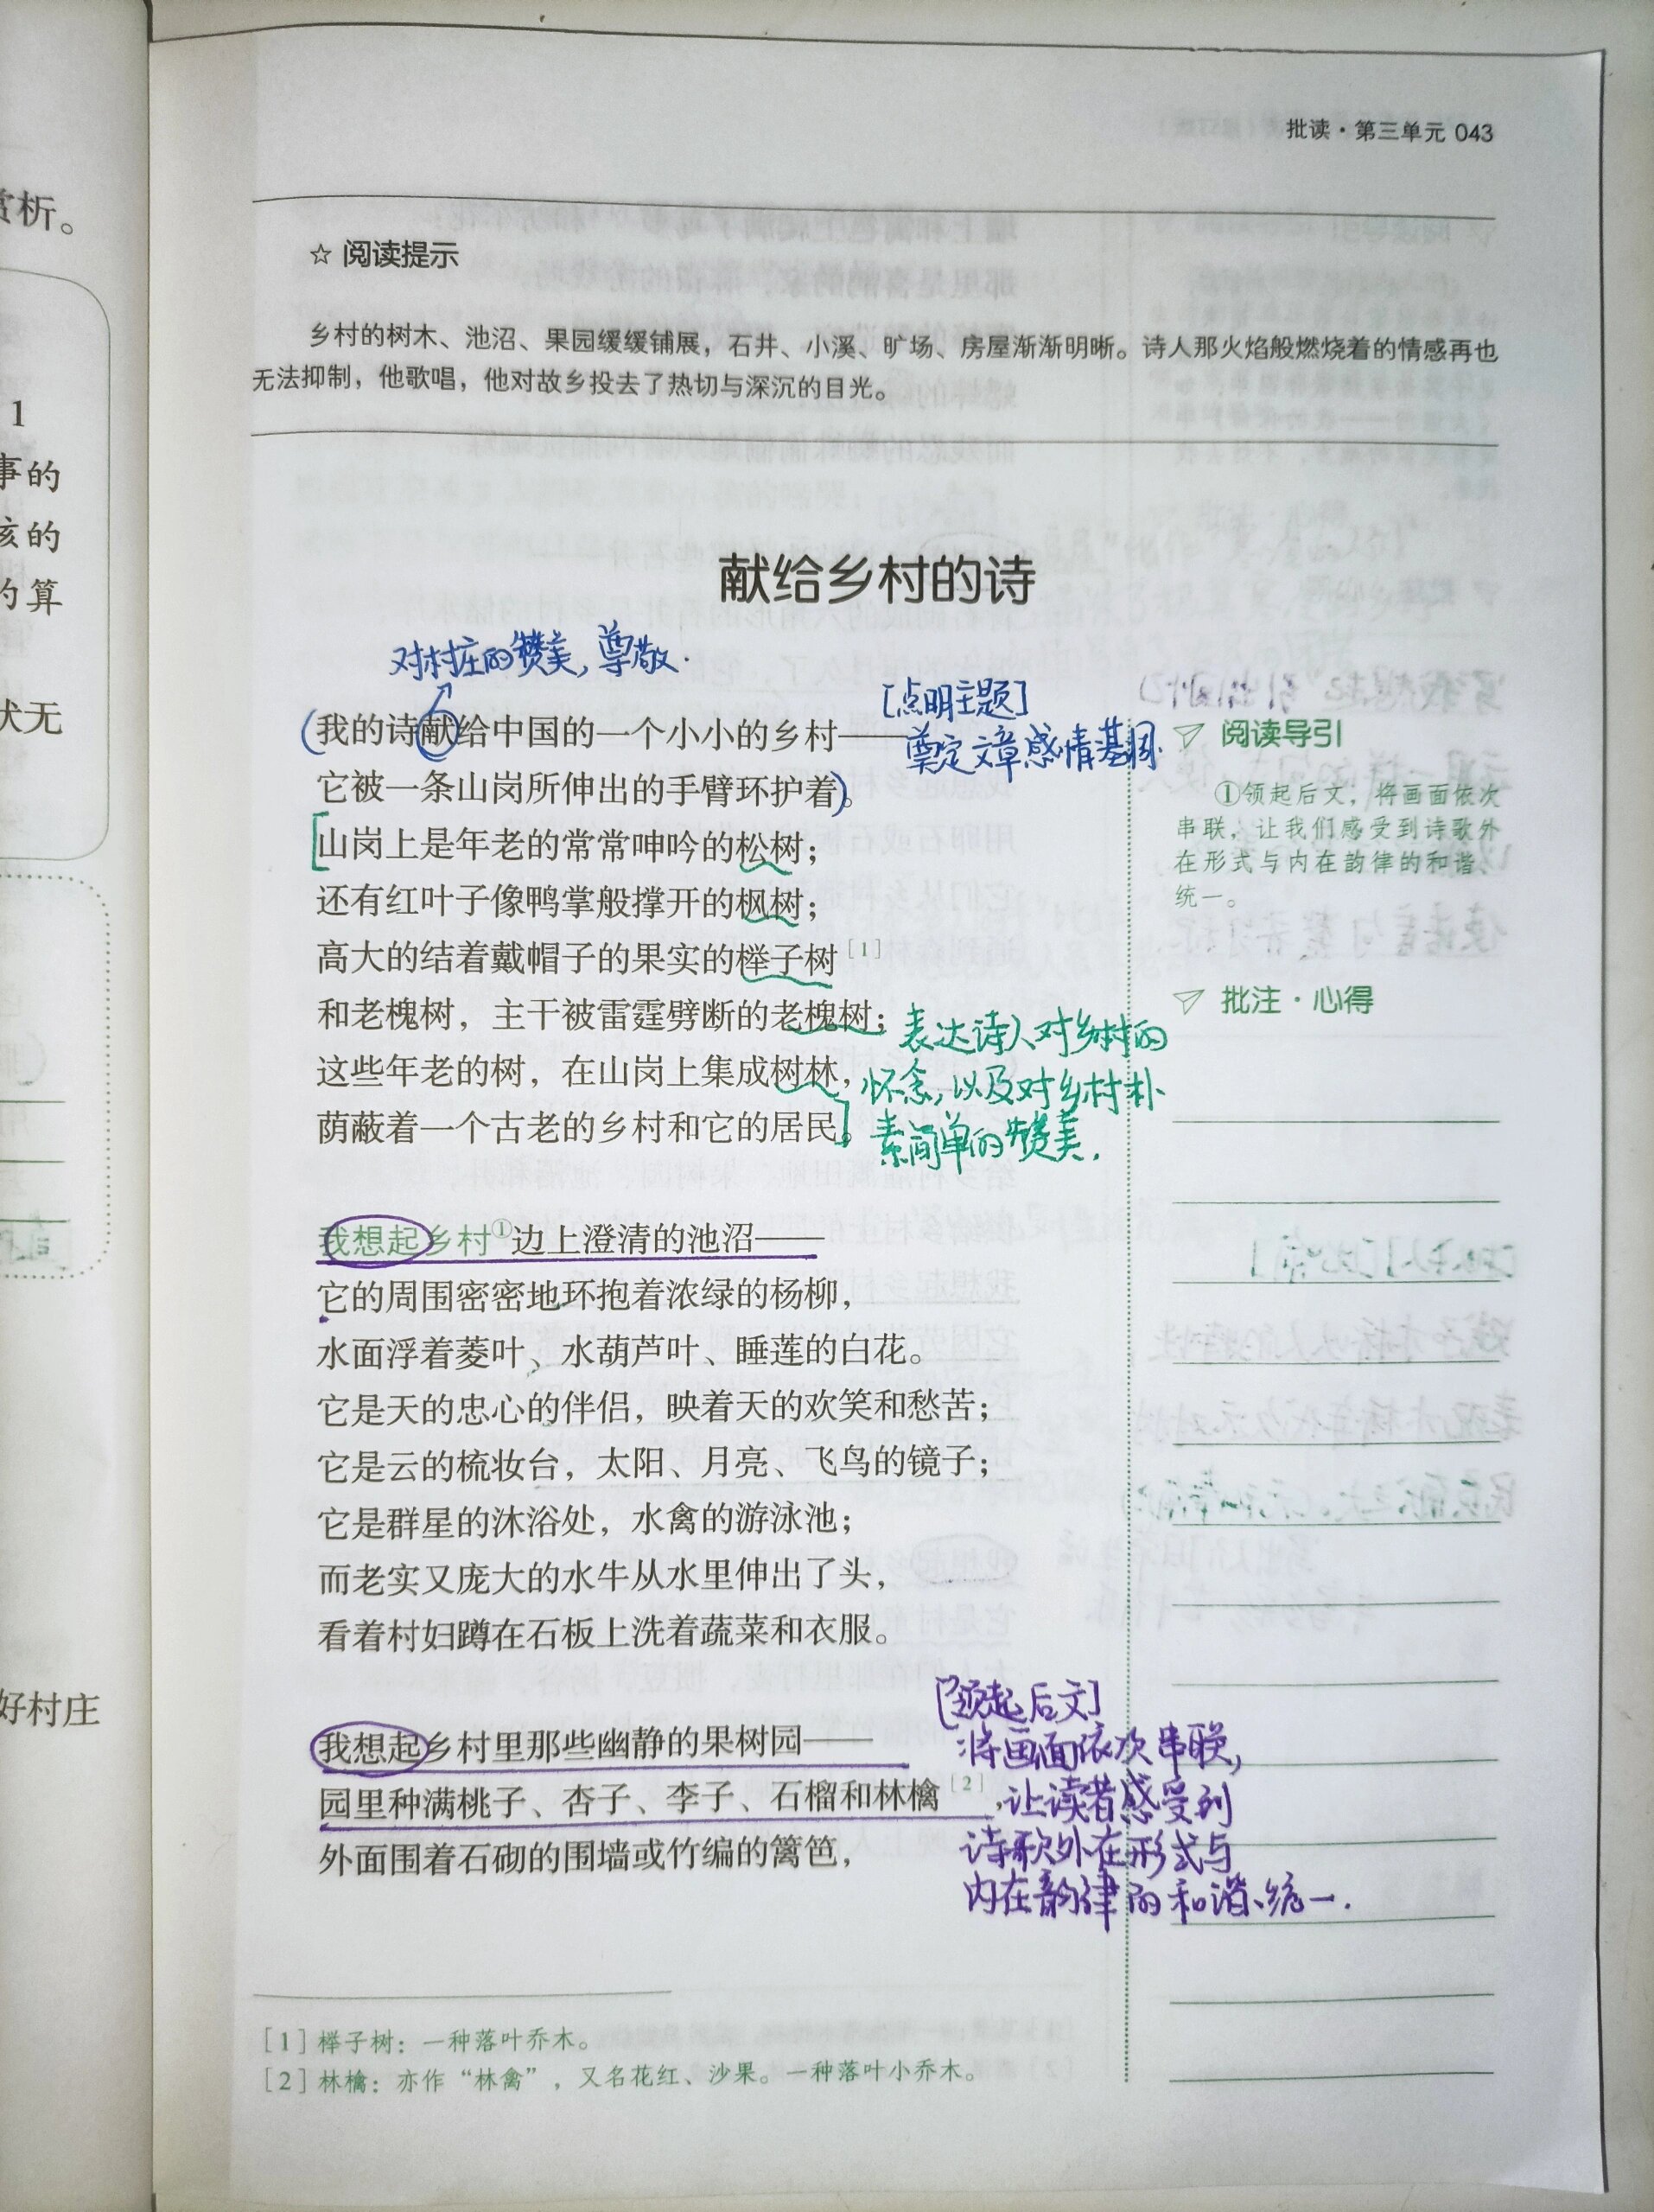 赏析。
1
事的
孩的
的算
犬无
好村庄
批读·第三单元 043
☆ 阅读提示
乡村的树木、池沼、果园缓缓铺展，石井、小溪、旷场、房屋渐渐明晰。诗人那火焰般燃烧着的情感再也
无法抑制，他歌唱，他对故乡投去了热切与深沉的目光。
献给乡村的诗
对村庄的赞美，尊敬.
[点明主题]
奠定文章感情基调.
（我的诗献给中国的一个小小的乡村——
它被一条山岗所伸出的手臂环护着）。
[山岗上是年老的常常呻吟的松树；
还有红叶子像鸭掌般撑开的枫树；
高大的结着戴帽子的果实的榉子树[1]
和老槐树，主干被雷霆劈断的老槐树；
这些年老的树，在山岗上集成树林，
荫蔽着一个古老的乡村和它的居民。]
表达诗人对乡村的
怀念，以及对乡村朴
素简单的赞美.
我想起乡村①边上澄清的池沼——
它的周围密密地环抱着浓绿的杨柳，
水面浮着菱叶、水葫芦叶、睡莲的白花。
它是天的忠心的伴侣，映着天的欢笑和愁苦；
它是云的梳妆台，太阳、月亮、飞鸟的镜子；
它是群星的沐浴处，水禽的游泳池；
而老实又庞大的水牛从水里伸出了头，
看着村妇蹲在石板上洗着蔬菜和衣服。
我想起乡村里那些幽静的果树园——
园里种满桃子、杏子、李子、石榴和林檎[2]，
外面围着石砌的围墙或竹编的篱笆，
[领起后文]
将画面依次串联，
让读者感受到
诗歌外在形式与
内在韵律的和谐、统一.
阅读导引
①领起后文，将画面依次
串联，让我们感受到诗歌外
在形式与内在韵律的和谐、
统一。
批注·心得
[1]榉子树：一种落叶乔木。
[2]林檎：亦作“林禽”，又名花红、沙果。一种落叶小乔木。